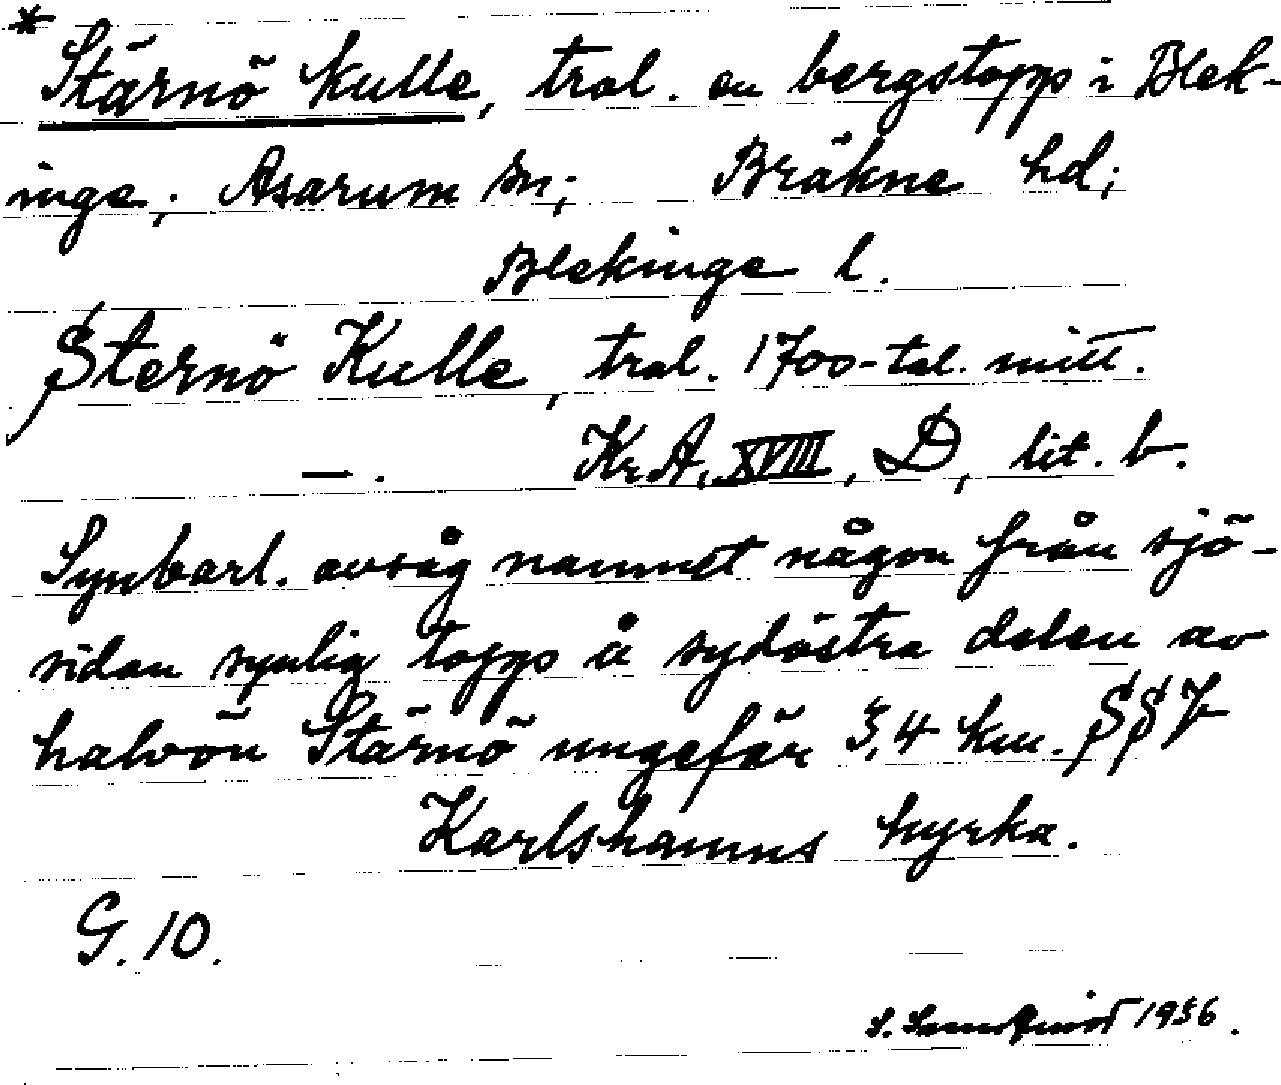 * Stärnö kulle, trol. en bergstopp i Blek-
inge; Asarum sn; Bräkne hd;
Blekinge l.
Sternö Kulle, trol. 1700-tal. mitt.
— . Kr.A, XVIII, D, lit. b.
Synbarl. avsåg namnet någon från sjö-
sidan synlig topp å sydöstra delen av
halvön Stärnö ungefär 3,4 km. SSV
Karlshamns kyrka.
G. 10.
S. 1956.